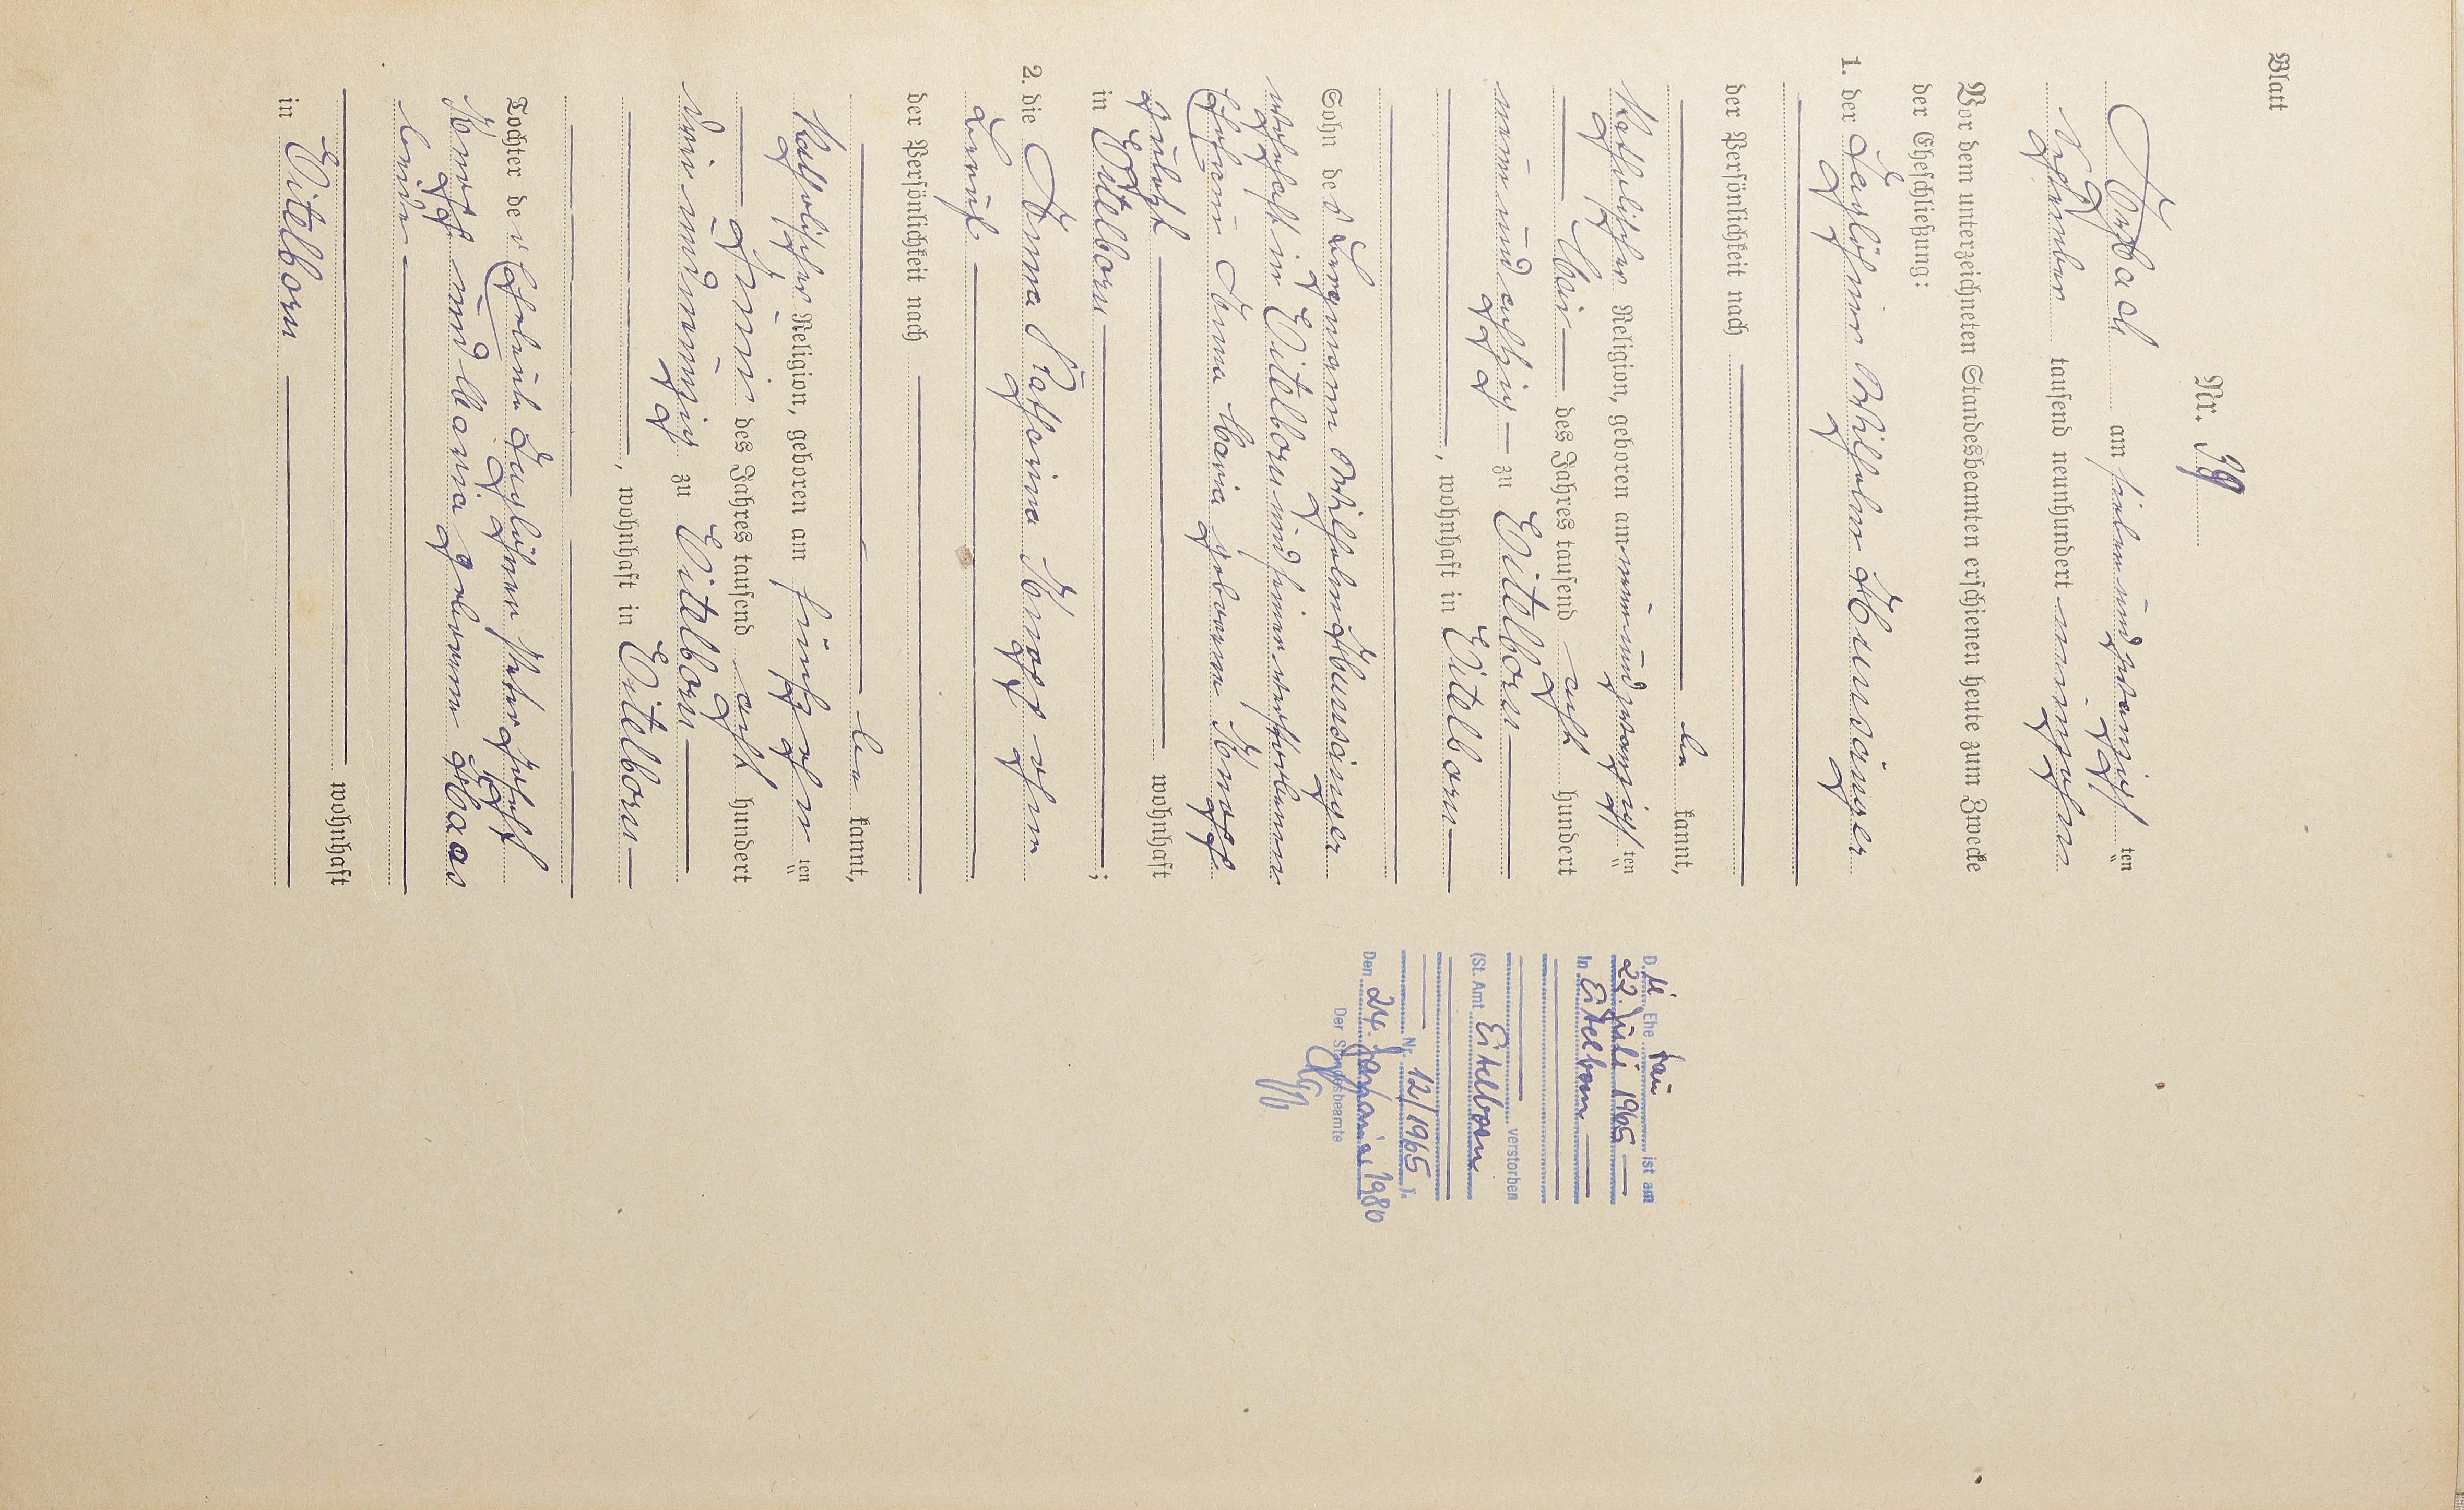 Blatt
Nr. 39
Arzbach am sieben und zwanzigsten
November tausend neunhundert neunzehn
Vor dem unterzeichneten Standesbeamten erschienen heute zum Zwecke
der Eheschließung:
1. der Taglöhner Wilhelm Hunsänger
der Persönlichkeit nach
be kannt,
katholischer Religion, geboren am neun und zwanzigsten
Mai des Jahres tausend acht hundert
neun und achtzig zu Eitelborn
, wohnhaft in Eitelborn
Sohn des Bergmann Wilhelm Hunsänger
wohnhaft in Eitelborn und seiner verstorbenen
Ehefrau Anna Maria geborene Knopp
zuletzt wohnhaft
in Eitelborn ;
2. die Anna Katharina Knopp ohne
Beruf
der Persönlichkeit nach
be kannt,
katholischer Religion, geboren am fünfzehn ten
Juni des Jahres tausend acht hundert
drei und neunzig zu Eitelborn
, wohnhaft in Eitelborn
Tochter der Eheleute Taglöhner Peter Joseph
Knopp und Maria geborene Haas
beide
wohnhaft
in Eitelborn
D ie Ehe frau ist am
22. Juli 1965
in Eitelborn
verstorben
(St. Amt Eitelborn
Nr. 12/1965 ).
Den 24. Januar 1980
Der Standesbeamte